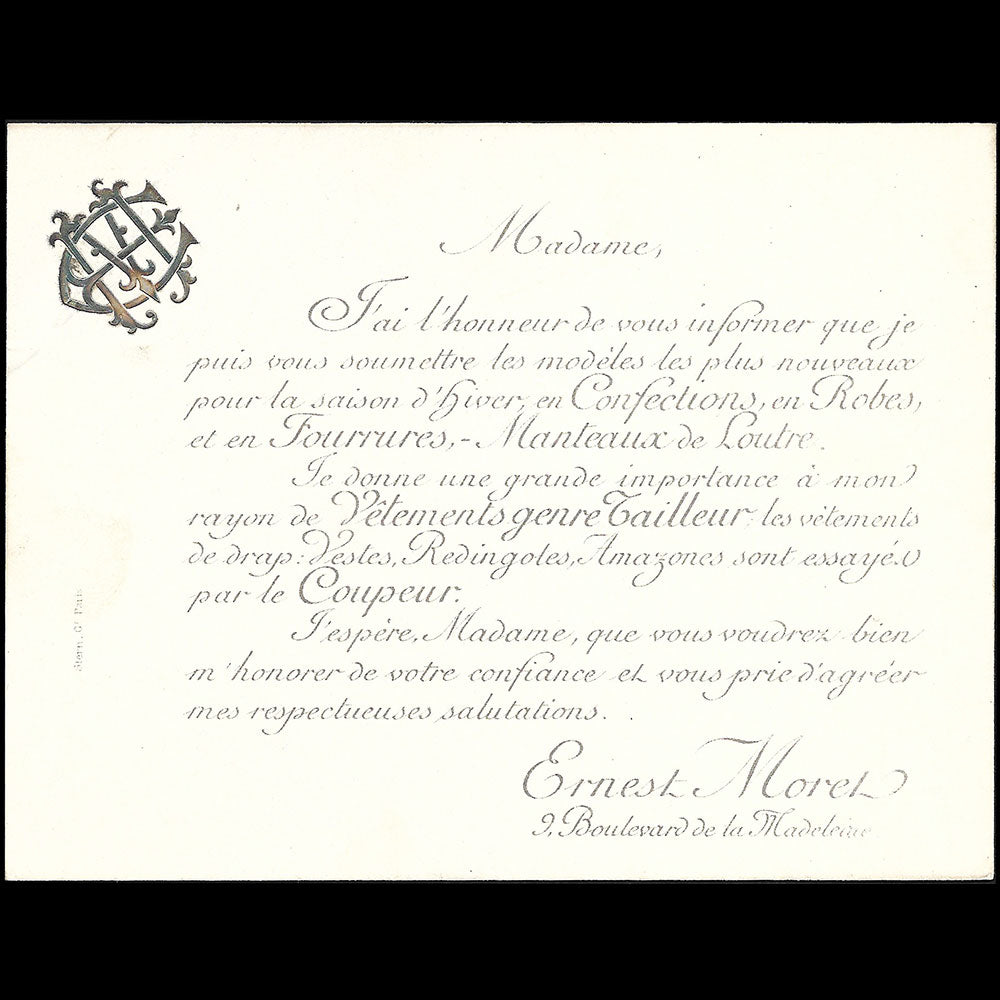 Madame,
J'ai l'honneur de vous informer que je
puis vous soumettre les modèles les plus nouveaux
pour la saison d'Hiver, en Confections, en Robes,
et en Fourrures, - Manteaux de Loutre.
Je donne une grande importance à mon
rayon de Vêtements genre Tailleur; les vêtements
de drap: Vestes, Redingotes, Amazones sont essayés
par le Coupeur.
J'espère, Madame, que vous voudrez bien
m'honorer de votre confiance et vous prie d'agréer
mes respectueuses salutations.
Ernest Moret
9, Boulevard de la Madeleine
Stern, Gr. Paris